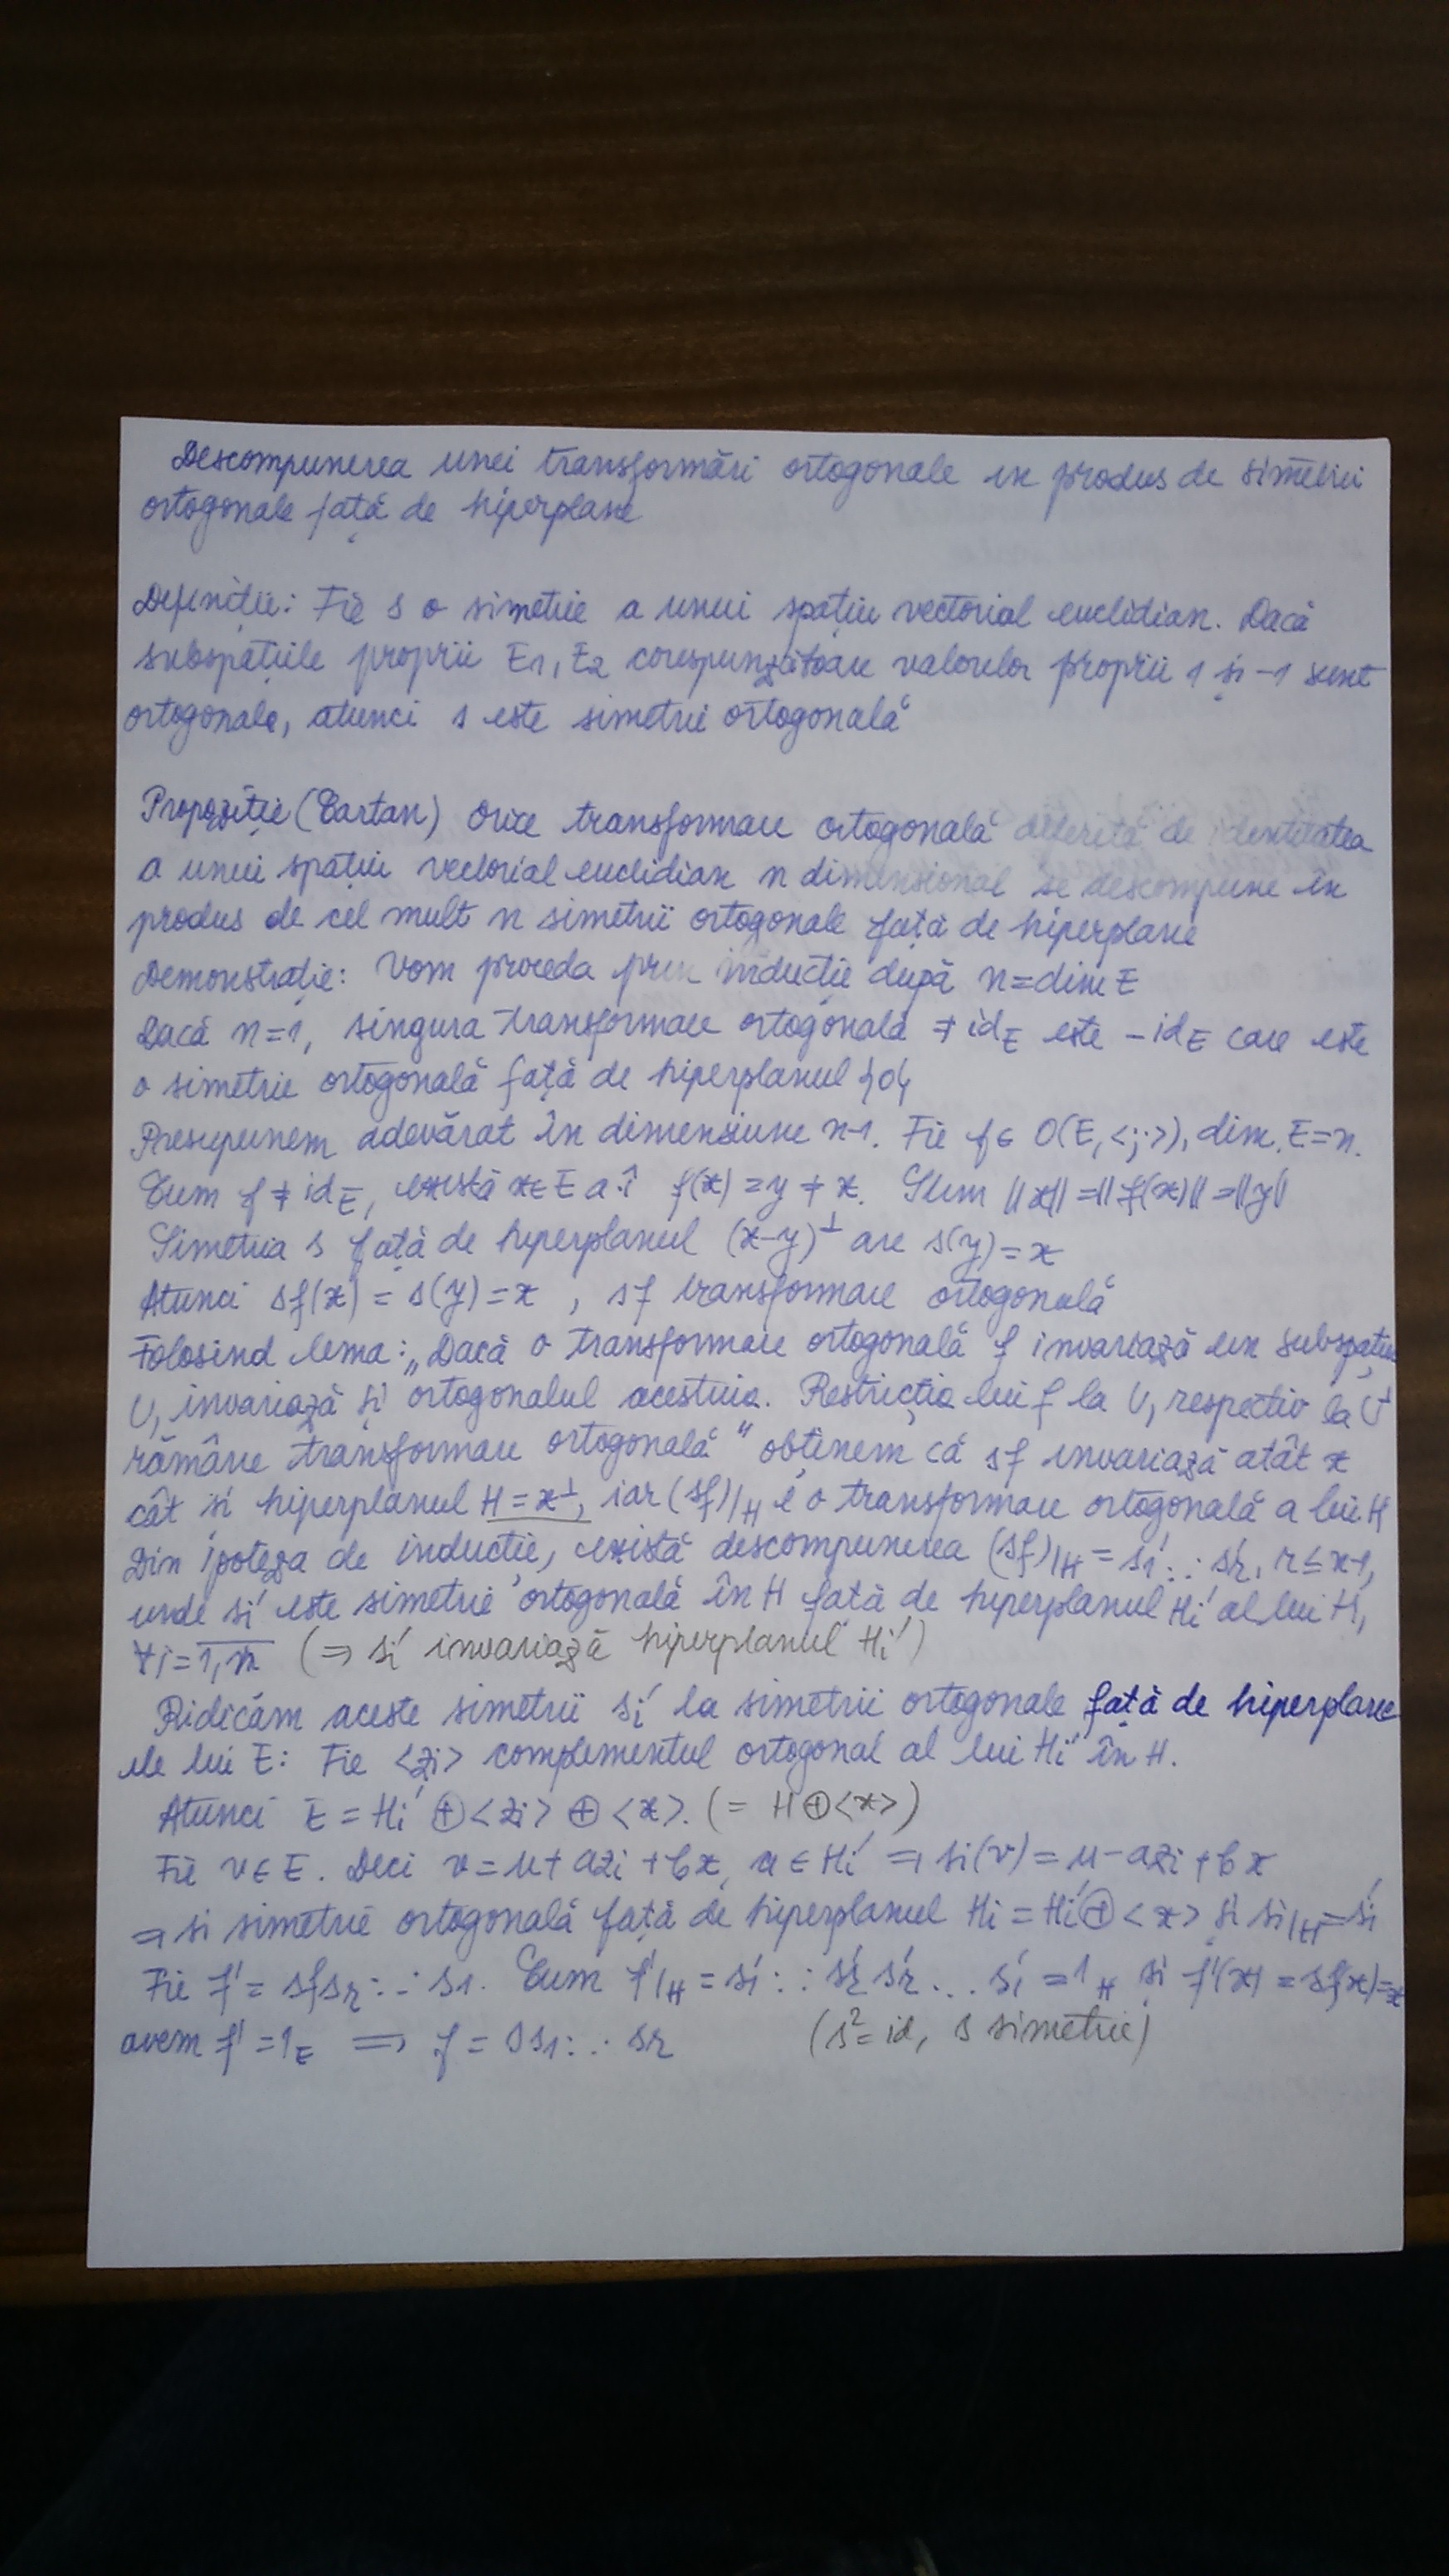 Descompunerea unei transformări ortogonale in produs de simetrii
ortogonale față de hiperplane
Definiție: Fie s o simetrie a unui spațiu vectorial euclidian. Dacă
subspațiile proprii E1, E2 corespunzătoare valorilor proprii 1 și -1 sunt
ortogonale, atunci s este simetrie ortogonală
Propoziție (Cartan) Orice transformare ortogonală diferită de identitatea
a unui spațiu vectorial euclidian n dimensional se descompune în
produs de cel mult n simetrii ortogonale față de hiperplane
Demonstrație: Vom proceda prin inducție după n=dim E
Dacă n=1, singura transformare ortogonală ≠ id_E este -id_E care este
o simetrie ortogonală față de hiperplanul {0}
Presupunem adevărat în dimensiune n-1. Fie f∈ O(E,<;>), dim E=n.
Cum f ≠ id_E, există x∈E a.î f(x)=y≠x. ||x||=||f(x)||=||y||
Simetria s față de hiperplanul (x-y)^⊥ are s(y)=x
Atunci sf(x) = s(y)=x , sf transformare ortogonală
Folosind lema: „Dacă o transformare ortogonală f invariază un subspațiu
U, invariază și ortogonalul acestuia. Restricția lui f la U, respectiv la U^⊥
rămâne transformare ortogonală" obținem că sf invariază atât x
cât și hiperplanul H=x^⊥, iar (sf)|_H e o transformare ortogonală a lui H
Din ipoteza de inducție, există descompunerea (sf)|_H = s1'...sr', r≤n-1,
unde si' este simetrie ortogonală în H față de hiperplanul Hi' al lui H,
∀i=1,n (⇒ si' invariază hiperplanul Hi')
Ridicăm aceste simetrii si' la simetrii ortogonale față de hiperplane
ale lui E: Fie <zi> complementul ortogonal al lui Hi' în H.
Atunci E = Hi' ⊕ <zi> ⊕ <x>. (= H⊕<x>)
Fie v∈E. Deci v=u+azi+bx, u∈Hi' ⇒ si(v)=u-azi+bx
⇒ si simetrie ortogonală față de hiperplanul Hi=Hi'⊕<x> și si|_H=si'
Fie f'= sfsr...s1. Cum f'|_H = s1'...sr' sr'...s1' = 1_H și f'(x) = sf(x)=x
avem f'=1_E ⇒ f = ss1...sr (s²=id, s simetrie)